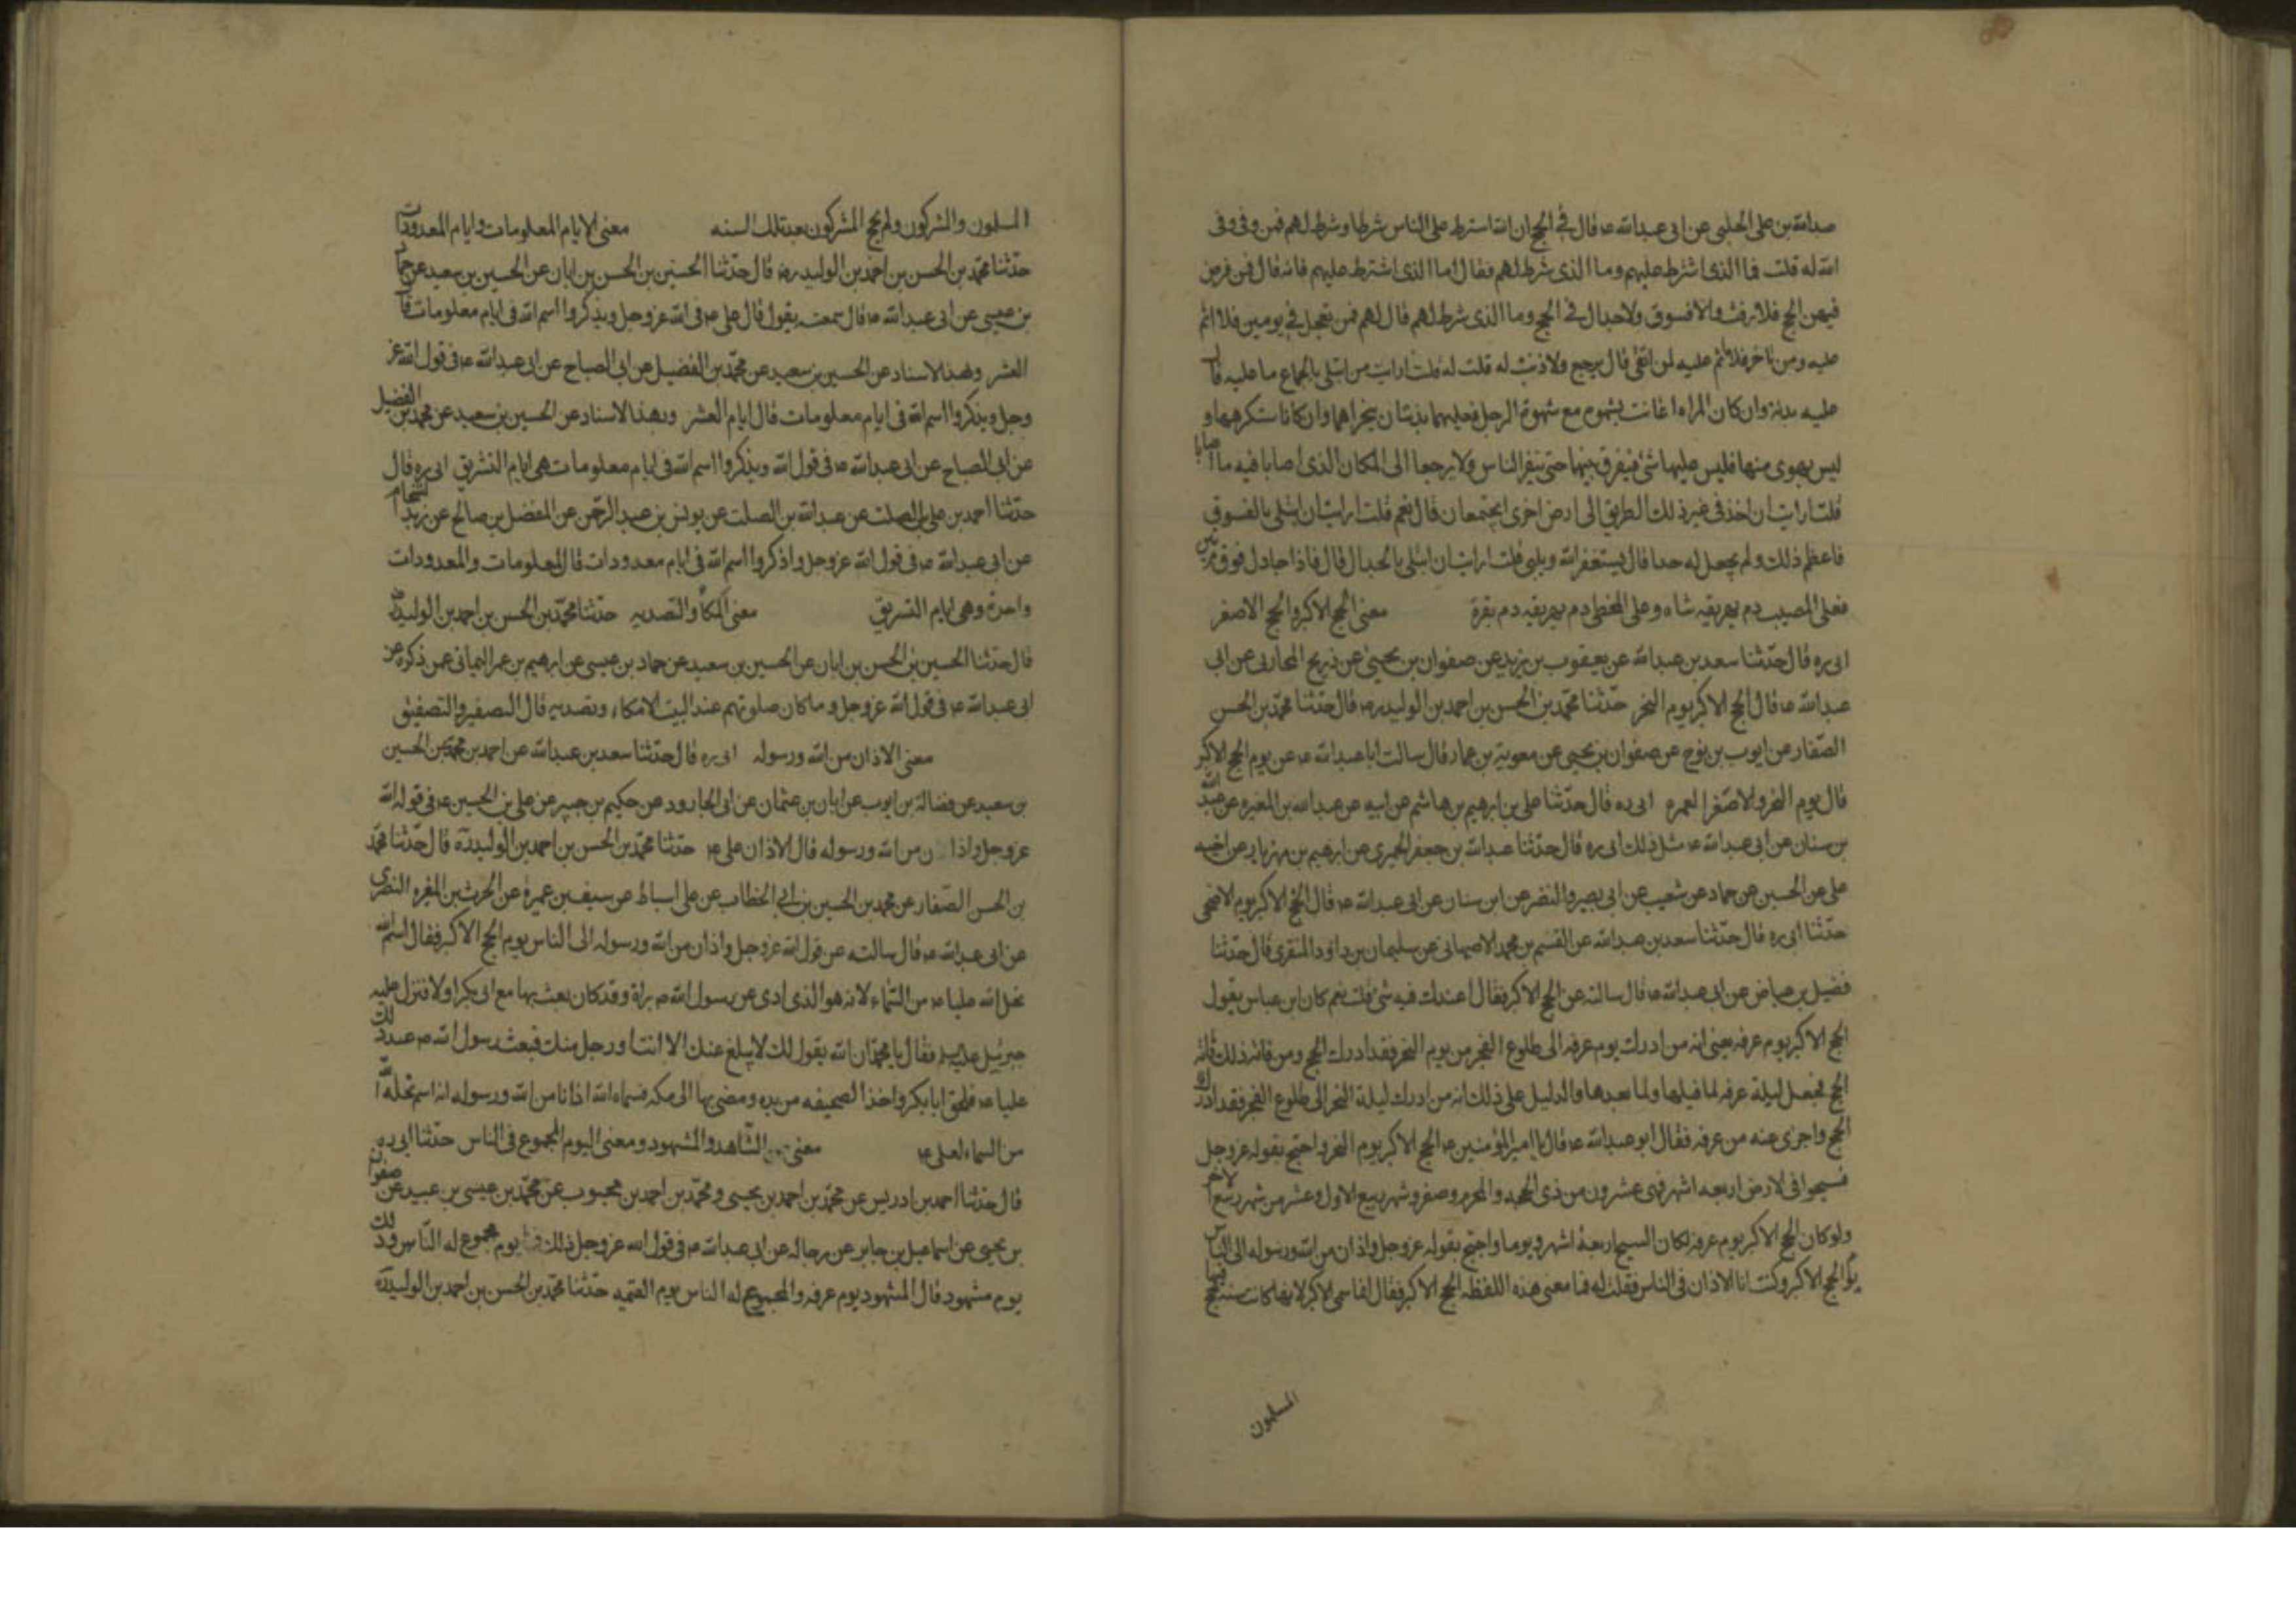 عبدالله بن على الحلبى عن ابى عبدالله ع قال فى الحج ان الله اشترط على الناس شرطا وشرط لهم فمن وفى وفى
الله له قلت فما الذى اشترط عليهم وما الذى شرط لهم فقال اما الذى اشترط عليهم فانه قال فمن فرض
فيهن الحج فلا رفث ولا فسوق ولا جدال فى الحج وما الذى شرط لهم قال لهم فمن تعجل فى يومين فلا اثم
عليه ومن تاخر فلا اثم عليه لمن اتقى قال يرجع ولا ذنب له قلت له قلت ارايت من ابتلى بالجماع ما عليه قال
عليه بدنة وان كان المراه اعانت بشهوه مع شهوة الرجل فعليهما بدنتان ينحراهما وان كان استكرهها و
ليس بهوى منها فليس عليها شئ فيفرق بينهما حتى ينفر الناس ولا يرجعا الى المكان الذى اصابا فيه ما اصابا
قلت ارايت ان اخذ فى غير ذلك الطريق الى ارض اخرى ايجتمعان قال نعم قلت ارايت ان ابتلى بالفسوق
فاعظم ذلك ولم يجعل له حدا قال يستغفر الله ويلبى قلت ارايت ان ابتلى بالجدال قال فاذا جادل فوق مرتين
فعلى المصيب دم يهريقه شاه وعلى المخطى دم يهريقه دم بقرة معنى الحج الاكبر والحج الاصغر
ابى ره قال حدثنا سعد بن عبدالله عن يعقوب بن يزيد عن صفوان بن يحيى عن ذريح المحاربى عن ابى
عبدالله ع قال الحج الاكبر يوم النحر حدثنا محمد بن الحسن بن احمد بن الوليد ره قال حدثنا محمد بن الحسن
الصفار عن ايوب بن نوح عن صفوان بن يحيى عن معوية بن عمار قال سالت ابا عبدالله ع عن يوم الحج الاكبر
قال يوم النحر والاصغر العمره ابى ره قال حدثنا على بن ابرهيم بن هاشم عن ابيه عن عبدالله بن المغيره عن عبدالله
بن سنان عن ابى عبدالله ع مثل ذلك ابى ره قال حدثنا عبدالله بن جعفر الحميرى عن ابرهيم بن مهزيار عن اخيه
على عن الحسين عن حماد عن شعيب عن ابى بصير والنضر عن ابن سنان عن ابى عبدالله ع قال الحج الاكبر يوم الاضحى
حدثنا ابى ره قال حدثنا سعد بن عبدالله عن القسم بن محمد الاصبهانى عن سليمان بن داود المنقرى قال حدثنا
فضيل بن عياض عن ابى عبدالله ع قال سالته عن الحج الاكبر فقال اعندك فيه شئ قلت نعم كان ابن عباس يقول
الحج الاكبر يوم عرفه يعنى انه من ادرك يوم عرفه الى طلوع الفجر من يوم النحر فقد ادرك الحج ومن فاته ذلك فاته
الحج فجعل ليلة عرفه لما قبلها ولما بعدها والدليل على ذلك انه من ادرك ليلة النحر الى طلوع الفجر فقد ادرك
الحج واجزى عنه من عرفه فقال ابو عبدالله ع قال امير المؤمنين ع الحج الاكبر يوم النحر واحتج بقوله عز وجل
فسيحوا فى الارض اربعه اشهر فهى عشرون من ذى الحجه والمحرم وصفر وشهر ربيع الاول وعشر من شهر ربيع الاخر
ولو كان الحج الاكبر يوم عرفه لكان السيح اربعة اشهر ويوما واحتج بقوله عز وجل واذان من الله ورسوله الى الناس
يوم الحج الاكبر وكنت انا الاذان فى الناس فقلت له فما معنى هذه اللفظه الحج الاكبر فقال انما سمى الاكبر لانها كانت سنه حج فيها
المسلمون
المسلمون والمشركون ولم يحج المشركون بعد تلك السنه معنى الايام المعلومات والايام المعدودات
حدثنا محمد بن الحسن بن احمد بن الوليد ره قال حدثنا الحسين بن الحسن بن ابان عن الحسين بن سعيد عن حماد
بن عيسى عن ابى عبدالله ع قال سمعته يقول قال على ع فى الله عز وجل ويذكروا اسم الله فى ايام معلومات قال
العشر وبهذا الاسناد عن الحسين بن سعيد عن محمد بن الفضيل عن ابى الصباح عن ابى عبدالله ع فى قول الله عز
وجل ويذكروا اسم الله فى ايام معلومات قال ايام العشر وبهذا الاسناد عن الحسين بن سعيد عن محمد بن الفضيل
عن ابى الصباح عن ابى عبدالله ع فى قول الله ويذكروا اسم الله فى ايام معلومات هى ايام التشريق ابى ره قال
حدثنا احمد بن على بن الصلت عن عبدالله بن الصلت عن يونس بن عبد الرحمن عن المفضل بن صالح عن زيد الشحام
عن ابى عبدالله ع فى قول الله عز وجل واذكروا اسم الله فى ايام معدودات قال المعلومات والمعدودات
واحدة وهى ايام التشريق معنى المكا والتصديه حدثنا محمد بن الحسن بن احمد بن الوليد ره
قال حدثنا الحسين بن الحسن بن ابان عن الحسين بن سعيد عن حماد بن عيسى عن ابرهيم بن عمر اليمانى عمن ذكره عن
ابى عبدالله ع فى قول الله عز وجل وما كان صلوتهم عند البيت الا مكاء وتصديه قال الصفير والتصفيق
معنى الاذان من الله ورسوله ابى ره قال حدثنا سعد بن عبدالله عن احمد بن محمد عن الحسين
بن سعيد عن فضالة بن ايوب عن ابان بن عثمان عن ابى الجارود عن حكيم بن جبير عن على بن الحسين ع فى قول الله
عز وجل واذان من الله ورسوله قال الاذان على ع حدثنا محمد بن الحسن بن احمد بن الوليد ره قال حدثنا محمد
بن الحسن الصفار عن محمد بن الحسين بن ابى الخطاب عن على اسباط عن سيف بن عميرة عن الحرث بن المغيره النصرى
عن ابى عبدالله ع قال سالته عن قول الله عز وجل واذان من الله ورسوله الى الناس يوم الحج الاكبر فقال اسم
نحل الله عليا ع من السماء لانه هو الذى ادى عن رسول الله ص براة وقد كان بعث بها مع ابى بكر اولا فنزل عليه
جبرئيل عليه السلم فقال يا محمد ان الله يقول لك لا يبلغ عنك الا انت او رجل منك فبعث رسول الله ص عند ذلك
عليا ع فلحق ابا بكر واخذ الصحيفه من يده ومضى بها الى مكه فسماه الله اذانا من الله ورسوله انه اسم نحله الله
من السماء لعلى ع معنى الشاهد والمشهود ومعنى اليوم المجموع فى الناس حدثنا ابى ره
قال حدثنا احمد بن ادريس عن محمد بن احمد بن يحيى ومحمد بن احمد بن محبوب عن محمد بن عيسى بن عبيد عن صفوان
بن يحيى عن اسماعيل بن جابر عن رجاله عن ابى عبدالله ع فى قول الله عز وجل ذلك يوم مجموع له الناس وذلك
يوم مشهود قال المشهود يوم عرفه والمجموع له الناس يوم القيمه حدثنا محمد بن الحسن بن احمد بن الوليد ره